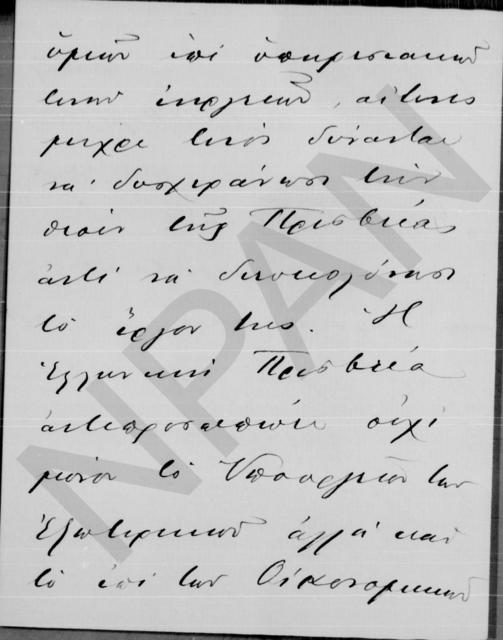 ὑμῶν ἐπὶ ὑπηρεσιακῶν
τινων ἐνεργειῶν, αἵτινες
μέχρι τινὸς δύνανται
νὰ δυσχεράνωσι τὴν
θέσιν τῆς Πρεσβείας
ἀντὶ νὰ διευκολύνωσι
τὸ ἔργον της. Ἡ
Ἑλληνικὴ Πρεσβεία
ἀντιπροσωπεύει οὐχὶ
μόνον τὸ Ὑπουργεῖον τῶν
Ἐξωτερικῶν ἀλλὰ καὶ
τὸ ἐπὶ τῶν Οἰκονομικῶν
NRAN